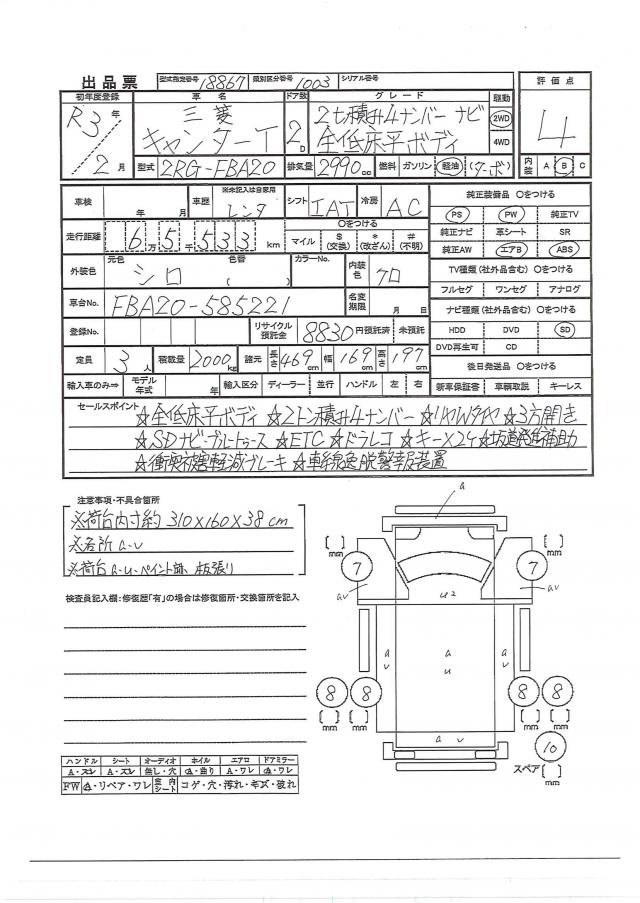 出品票 型式指定番号 18867 類別区分番号 1003 シリアル番号
初年度登録 車名 ドア数 グレード 駆動 評価点
R3年 三菱 2t積み4ナンバー ナビ 2WD
/2月 キャンターT 2D 全低床平ボディ 4WD 4
型式 2RG-FBA20 排気量 2990cc 燃料 ガソリン 軽油 (ターボ) 内装 A B C
車検 年 月 車歴 ※未記入は自家用 レンタ シフト IAT 冷房 AC 純正装備品 ○をつける
PS PW 純正TV
走行距離 6万5千533km ○をつける マイル $(交換) *(改ざん) #(不明) 純正ナビ 革シート SR
純正AW エアB ABS
外装色 元色 シロ 色替 ( ) カラーNo. 内装色 クロ TV種類(社外品含む) ○をつける
フルセグ ワンセグ アナログ
車台No. FBA20-585221 名変期限 月 日 ナビ種類(社外品含む) ○をつける
登録No. リサイクル預託金 8830円預託済 未預託 HDD DVD SD
DVD再生可 CD
定員 3人 積載量 2000kg 諸元 長さ 469cm 幅 169cm 高さ 197cm 後日発送品 ○をつける
輸入車のみ⇒ モデル年式 年 輸入区分 ディーラー 並行 ハンドル 左 右 新車保証書 車輌取説 キーレス
セールスポイント ☆全低床平ボディ ☆2トン積み4ナンバー ☆リヤWタイヤ ☆3方開き
☆SDナビ・ブルートゥース ☆ETC ☆ドラレコ ☆キー×2ケ ☆坂道発進補助
☆衝突被害軽減ブレーキ ☆車線逸脱警報装置
注意事項・不具合箇所
※荷台内寸約 310×160×38cm
※各所 a.u
※荷台 a.u.ペイント跡 板張り
検査員記入欄:修復歴「有」の場合は修復箇所・交換箇所を記入
a
[ ]mm [ ]mm
7 7
au u2 au
a u a u a u
8 8 8 8
[ ]mm [ ]mm [ ]mm [ ]mm
a u
10
スペア [ ]mm
ハンドル シート オーディオ ホイル エアロ ドアミラー
A・スレ A・スレ 無し・穴 A・曲り A・ワレ A・ワレ
FW A・リペア・ワレ 室内シート コゲ・穴・汚れ・キズ・破れ